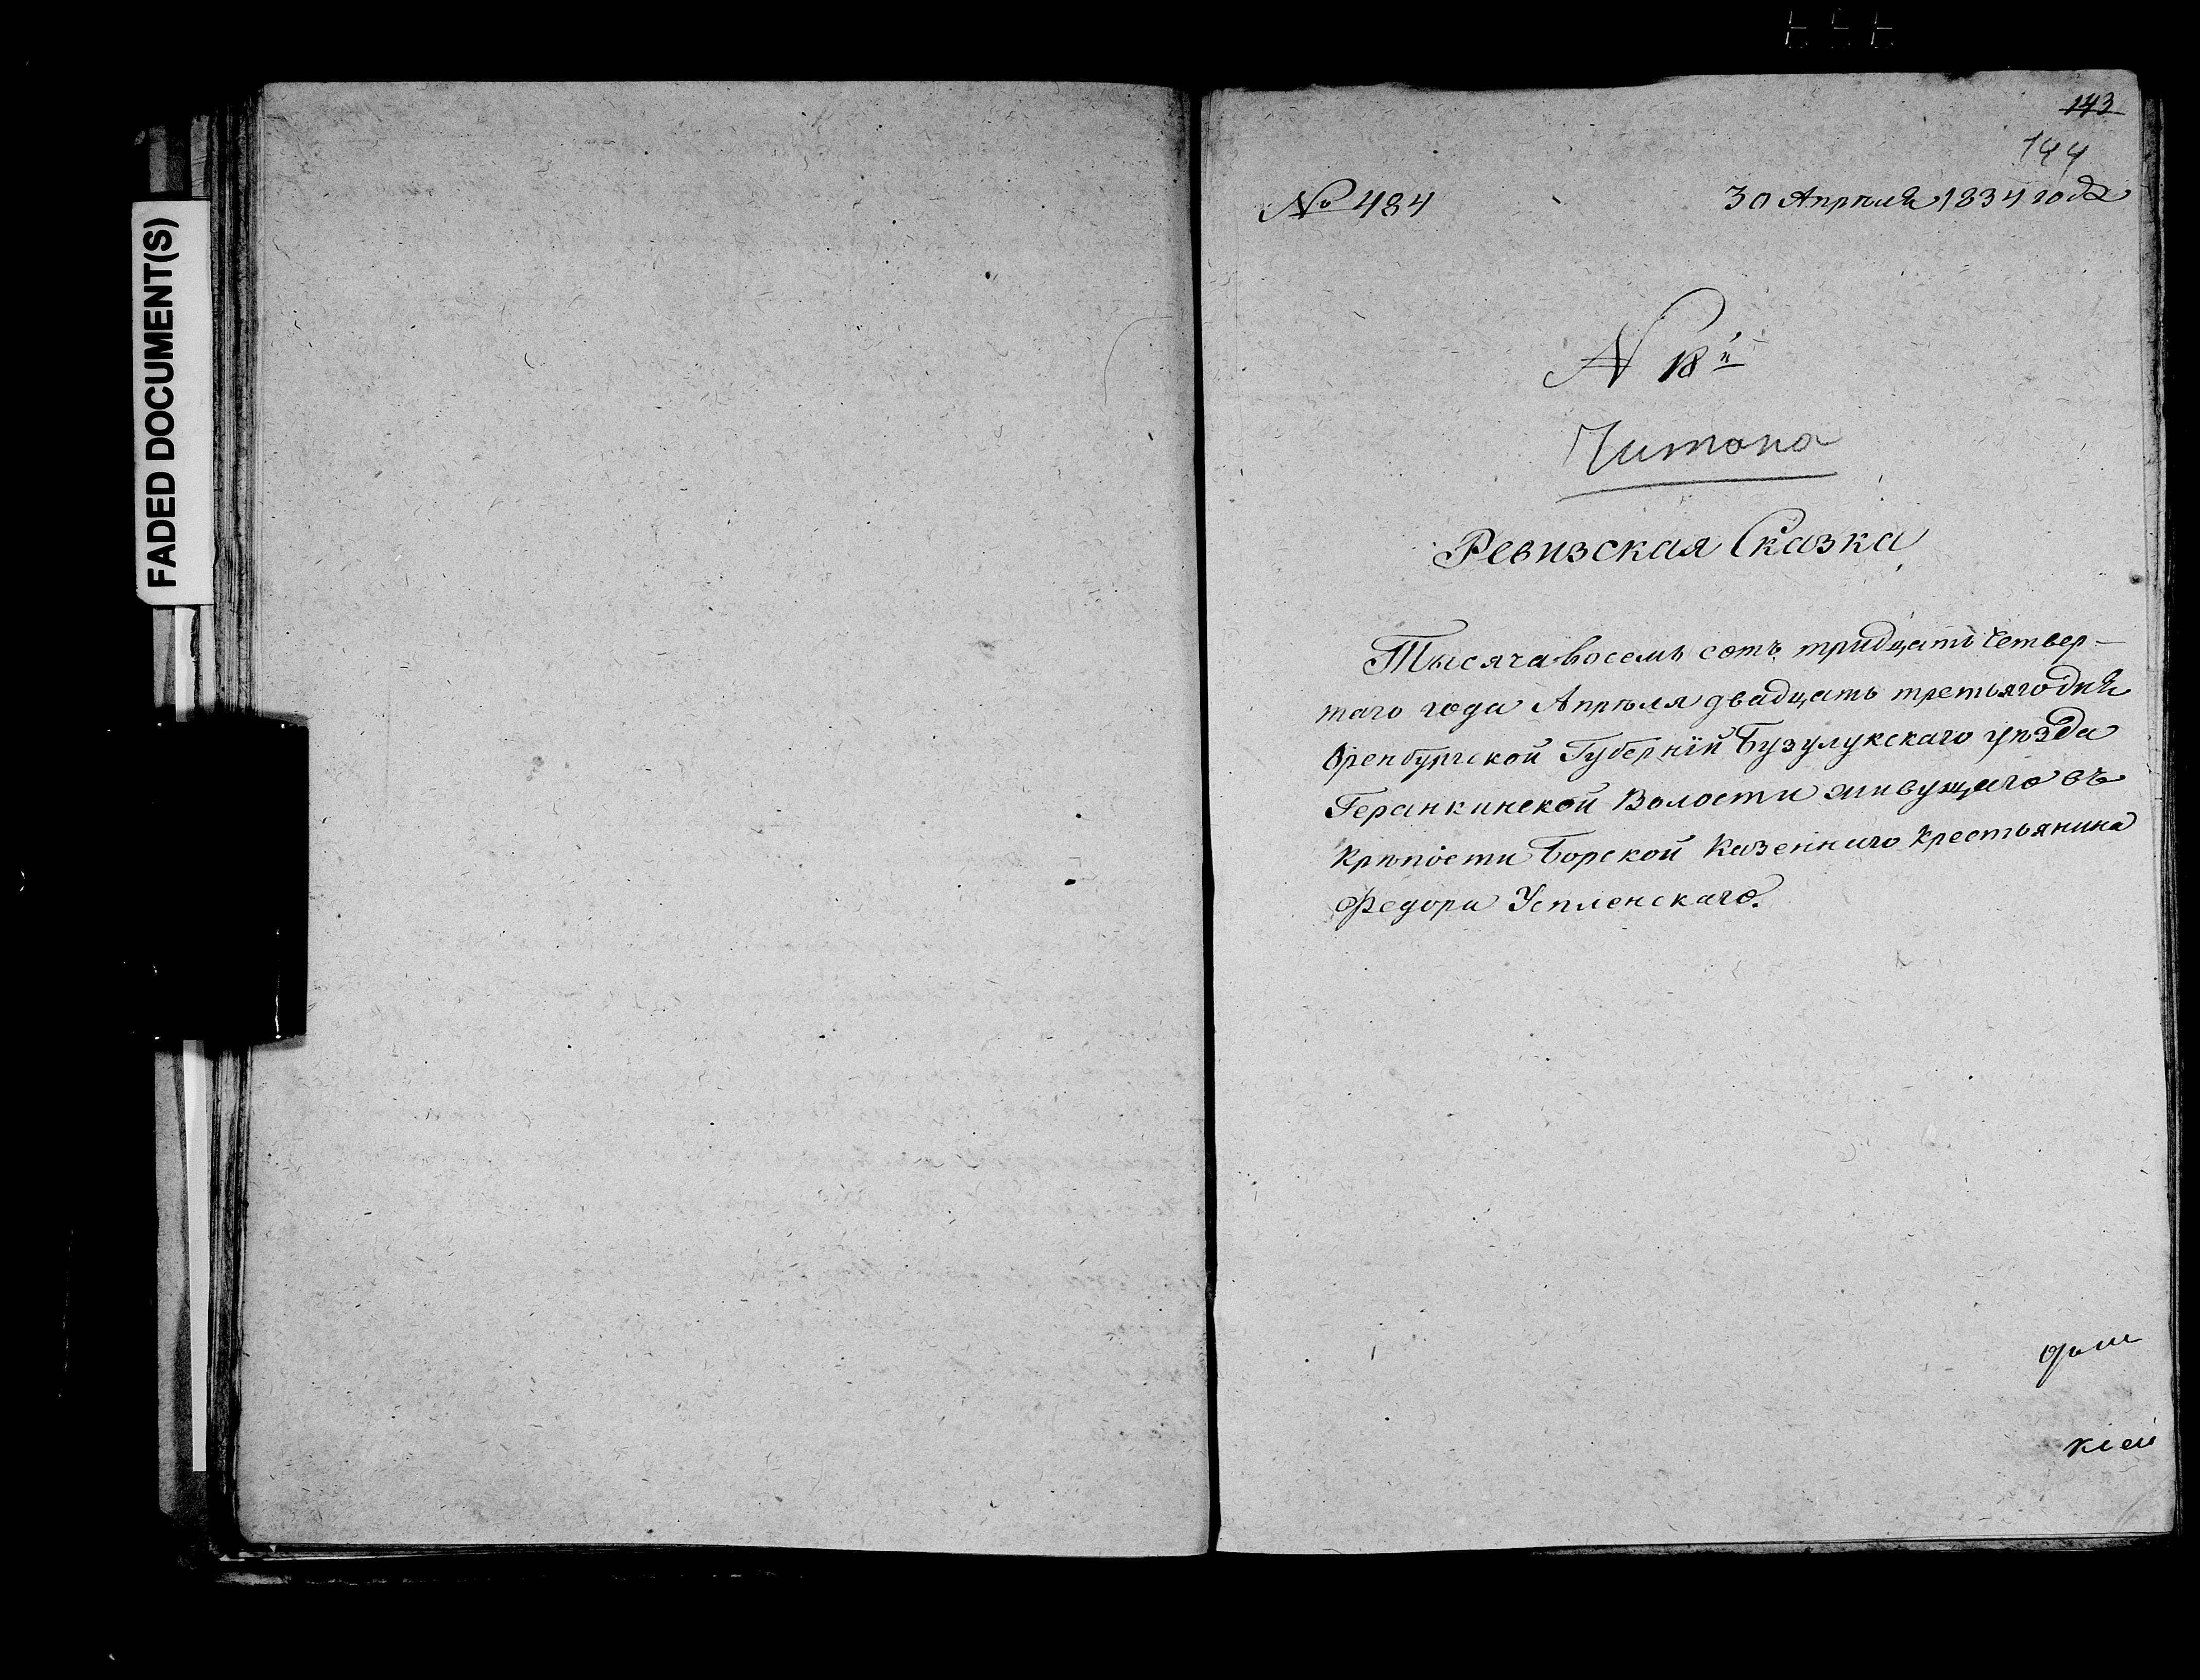 FADED DOCUMENT(S)
143
144
№ 484
30 Апрѣля 1834 года
N 18й
Читана
Ревизская Сказка
Тысяча восемь сотъ тридцать четвер-
таго года Апрѣля двадцать третьяго дня
Оренбургской Губерніи Бузулукскаго уѣзда
Геранкинской Волости живущаго въ
крѣпости Борской Казеннаго крестьянина
Федора Успленскаго.